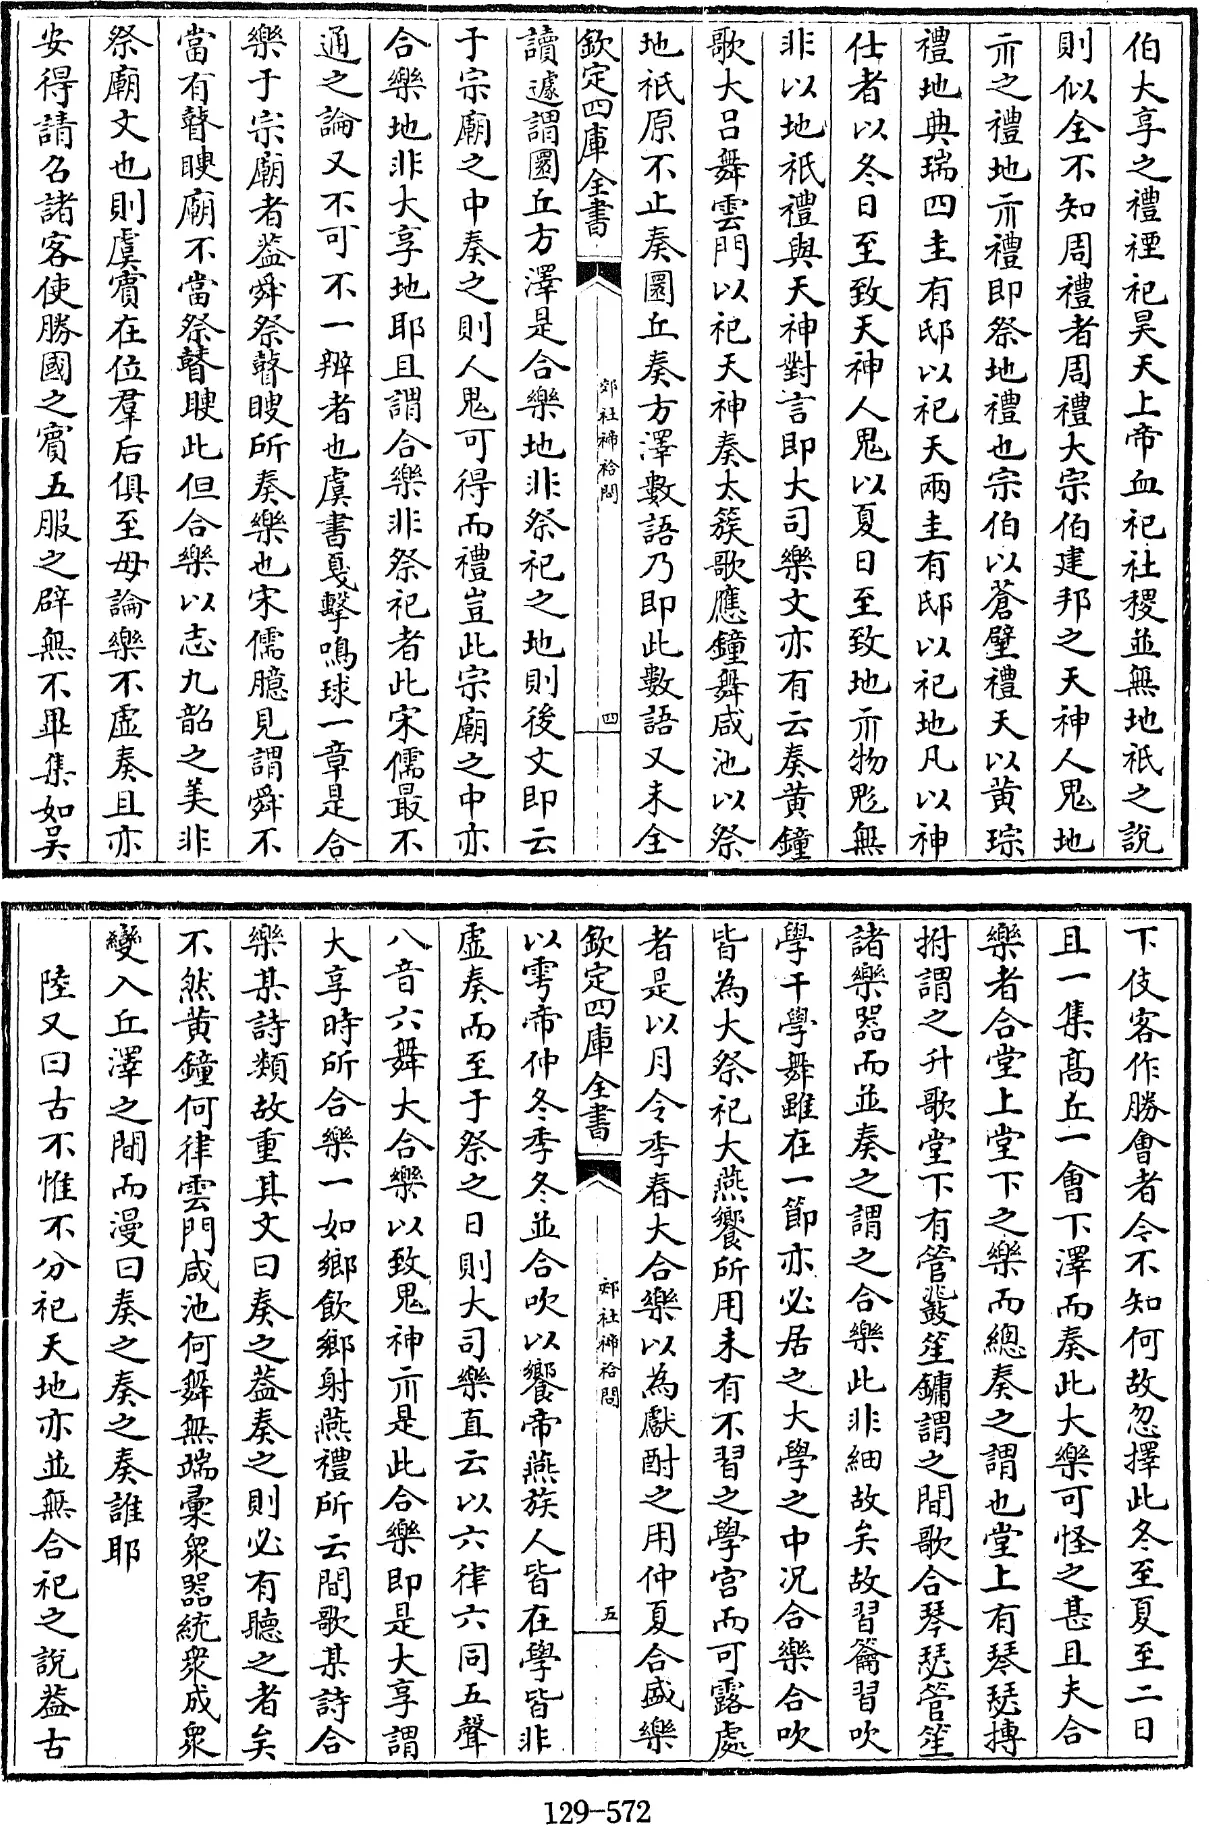 伯大享之禮禋祀昊天上帝血祀社稷並無地祇之說
則似全不知周禮者周禮大宗伯建邦之天神人鬼地
示之禮地示禮即祭地禮也宗伯以蒼璧禮天以黃琮
禮地典瑞四圭有邸以祀天兩圭有邸以祀地凡以神
仕者以冬日至致天神人鬼以夏日至致地示物鬽無
非以地祇禮與天神對言即大司樂文亦有云奏黃鐘
歌大呂舞雲門以祀天神奏太簇歌應鐘舞咸池以祭
地祇原不止奏圜丘奏方澤數語乃即此數語又未全
欽定四庫全書
郊社禘祫問
四
讀遽謂圜丘方澤是合樂地非祭祀之地則後文即云
于宗廟之中奏之則人鬼可得而禮豈此宗廟之中亦
合樂地非大享地耶且謂合樂非祭祀者此宋儒最不
通之論又不可不一辨者也虞書戛擊鳴球一章是合
樂于宗廟者葢舜祭瞽瞍所奏樂也宋儒臆見謂舜不
當有瞽瞍廟不當祭瞽瞍此但合樂以志九韶之美非
祭廟文也則虞賓在位羣后俱至毋論樂不虛奏且亦
安得請名諸客使勝國之賓五服之辟無不畢集如吴
下伎客作勝會者今不知何故忽擇此冬至夏至二日
且一集髙丘一會下澤而奏此大樂可怪之甚且夫合
樂者合堂上堂下之樂而總奏之謂也堂上有琴瑟搏
拊謂之升歌堂下有管鼗笙鏞謂之間歌合琴瑟管笙
諸樂器而並奏之謂之合樂此非細故矣故習籥習吹
學干學舞雖在一節亦必居之大學之中况合樂合吹
皆為大祭祀大燕饗所用未有不習之學宫而可露處
者是以月令季春大合樂以為獻酎之用仲夏合盛樂
欽定四庫全書
郊社禘祫問
五
以雩帝仲冬季冬並合吹以饗帝燕族人皆在學皆非
虛奏而至于祭之日則大司樂直云以六律六同五聲
八音六舞大合樂以致鬼神示是此合樂即是大享謂
大享時所合樂一如鄉飲鄉射燕禮所云間歌某詩合
樂某詩類故重其文曰奏之葢奏之則必有聽之者矣
不然黃鐘何律雲門咸池何舞無端彚衆器統衆成衆
變入丘澤之間而漫曰奏之奏之奏誰耶
陸又曰古不惟不分祀天地亦並無合祀之說葢古
129-572